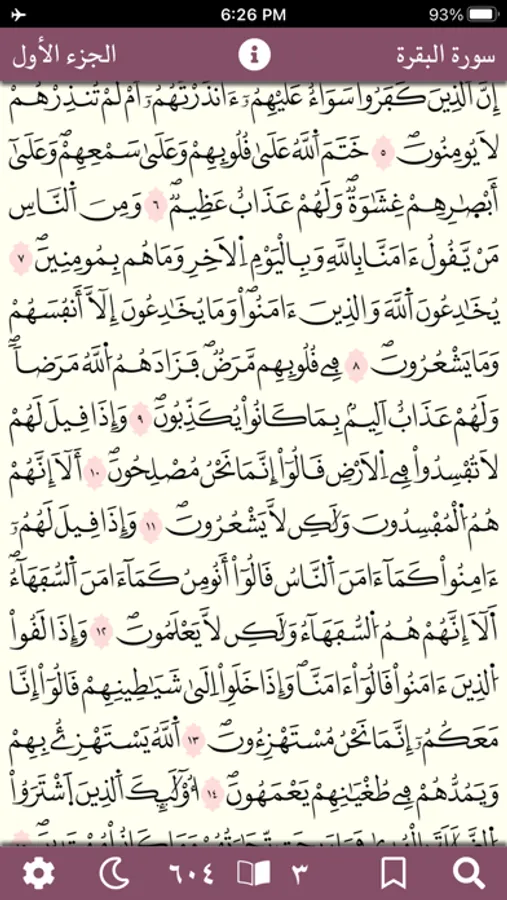 ✈ 6:26 PM 93%
سورة البقرة الجزء الأول
إِنَّ اَ۬لذِينَ كَفَرُواْ سَوَآءٌ عَلَيْهِمُۥٓ ءَآنذَرْتَهُمُۥٓ أَمْ لَمْ تُنذِرْهُمْ
لَا يُومِنُونَۖ ٥ خَتَمَ اَ۬للَّهُ عَلَىٰ قُلُوبِهِمْ وَعَلَىٰ سَمْعِهِمْۖ وَعَلَىٰٓ
أَبْصٰ۪رِهِمْ غِشَٰوَةٞۖ وَلَهُمْ عَذَابٌ عَظِيمٞۖ ٦ وَمِنَ اَ۬لنَّاسِ
مَنْ يَّقُولُ ءَامَنَّا بِاللَّهِ وَبِالْيَوْمِ اِ۬لَاخِرِ وَمَا هُم بِمُومِنِينَۖ ٧
يُخَٰدِعُونَ اَ۬للَّهَ وَالذِينَ ءَامَنُواْۖ وَمَا يُخَٰدِعُونَ إِلَّآ أَنفُسَهُمْ
وَمَا يَشْعُرُونَۖ ٨ فِے قُلُوبِهِم مَّرَضٞۖ فَزَادَهُمُ اُ۬للَّهُ مَرَضاٗۖ
وَلَهُمْ عَذَابٌ اَلِيمُۢ بِمَا كَانُواْ يُكَذِّبُونَۖ ٩ وَإِذَا قِيلَ لَهُمْ
لَا تُفْسِدُواْ فِے اِ۬لَارْضِ قَالُوٓاْ إِنَّمَا نَحْنُ مُصْلِحُونَۖ ١٠ أَلَآ إِنَّهُمْ
هُمُ اُ۬لْمُفْسِدُونَ وَلَٰكِن لَّا يَشْعُرُونَۖ ١١ وَإِذَا قِيلَ لَهُمُۥٓ
ءَامِنُواْ كَمَآ ءَامَنَ اَ۬لنَّاسُ قَالُوٓاْ أَنُومِنُ كَمَآ ءَامَنَ اَ۬لسُّفَهَآءُۖ
أَلَآ إِنَّهُمْ هُمُ اُ۬لسُّفَهَآءُ وَلَٰكِن لَّا يَعْلَمُونَۖ ١٢ وَإِذَا لَقُواْ
اُ۬لذِينَ ءَامَنُواْ قَالُوٓاْ ءَامَنَّاۖ وَإِذَا خَلَوِاْ اِلَىٰ شَيَٰطِينِهِمْ قَالُوٓاْ إِنَّا
مَعَكُمُۥٓ إِنَّمَا نَحْنُ مُسْتَهْزِءُونَۖ ١٣ اَ۬للَّهُ يَسْتَهْزِۓُ بِهِمْ
وَيَمُدُّهُمْ فِے طُغْيَٰنِهِمْ يَعْمَهُونَۖ ١٤ أُوْلَٰٓئِكَ اَ۬لذِينَ اَ۪شْتَرَوُاْ
٣ ٦٠٤